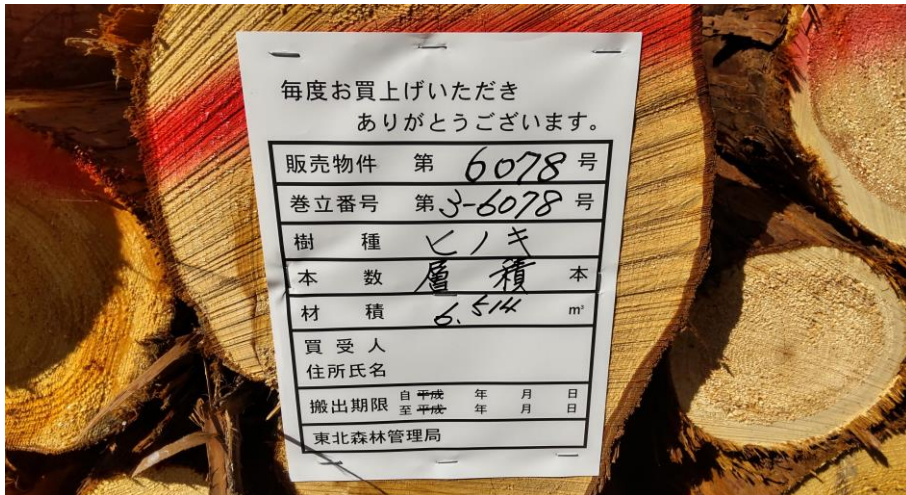 毎度お買上げいただき
ありがとうございます。
販売物件 第 6078 号
巻立番号 第 3-6078 号
樹種 ヒノキ
本数 層積 本
材積 6.514 m³
買受人
住所氏名
搬出期限 自 平成 年 月 日
至 平成 年 月 日
東北森林管理局